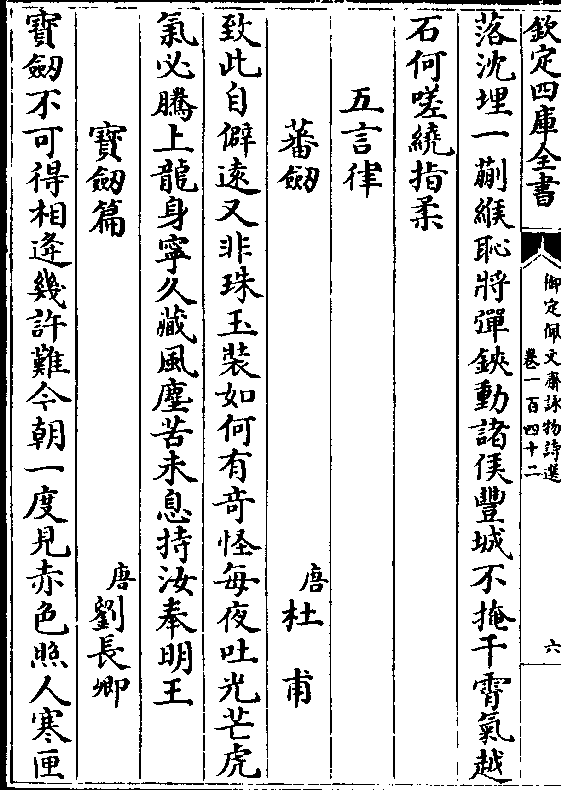 欽定四庫全書
御定佩文齋詠物詩選
卷一百四十二
六
落沈埋一蒯緱恥將彈鋏動諸侯豐城不掩干霄氣越
石何嗟繞指柔
五言律
蕃劒
唐杜甫
致此自僻逺又非珠玉裝如何有竒怪每夜吐光芒虎
氣必騰上龍身寧久藏風塵苦未息持汝奉明王
寳劒篇
唐劉長卿
寳劒不可得相逢幾許難今朝一度見赤色照人寒匣